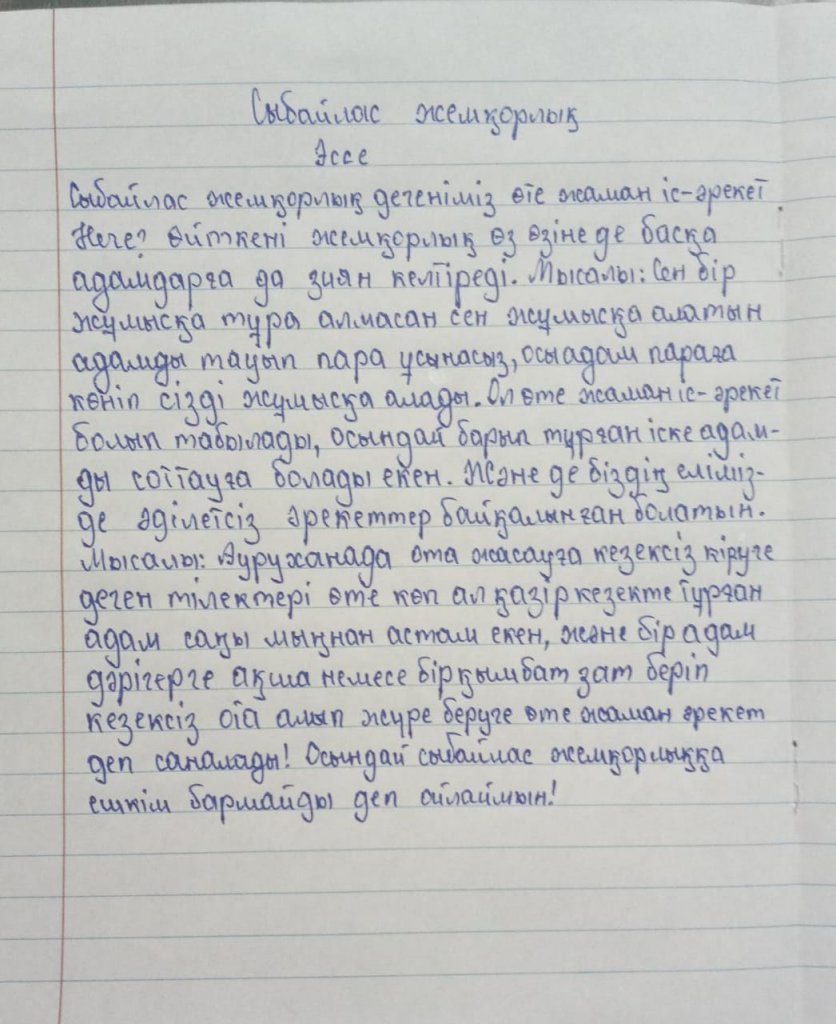 Сыбайлас жемқорлық
Эссе
Сыбайлас жемқорлық дегеніміз өте жаман іс-әрекет
Неге? Өйткені жемқорлық өз өзіне де басқа
адамдарға да зиян келтіреді. Мысалы: Сен бір
жұмысқа тұра алмасан сен жұмысқа алатын
адамды тауып пара ұсынасыз, осы адам параға
көніп сізді жұмысқа алады. Ол өте жаман іс-әрекет
болып табылады, осындай барып тұрған іске адам-
ды соттауға болады екен. Және де біздің еліміз-
де әділетсіз әрекеттер байқалынған болатын.
Мысалы: Ауруханада ота жасауға кезексіз кіруге
деген тілектері өте көп ал қазір кезекте тұрған
адам саңы мыңнан астам екен, және бір адам
дәрігерге ақша немесе бір қымбат зат беріп
кезексіз ота алып жүре беруге өте жаман әрекет
деп саналады! Осындай сыбайлас жемқорлыққа
ешкім бармайды деп ойлаймын!